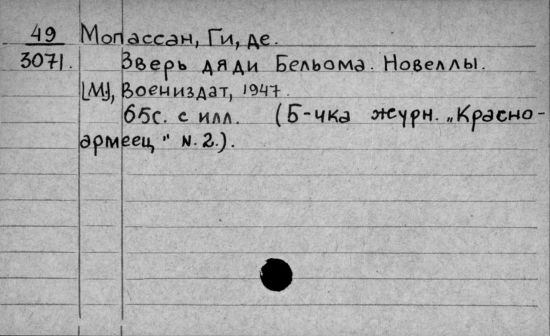 49 Мопассан, Ги, де.
3071. Зверь дяди Бельома. Новеллы.
[М], Воениздат, 1947.
65с. с илл. (Б-чка журн. „Красно-
армеец" N. 2.).